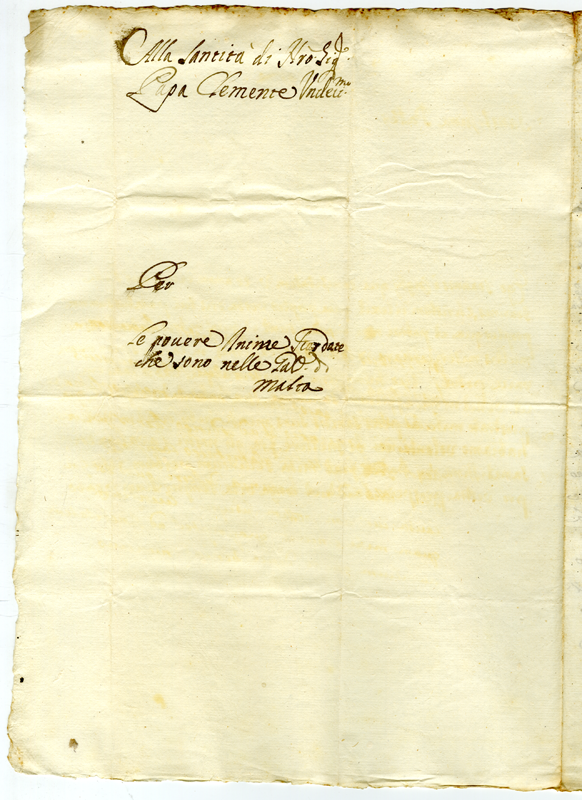 Alla Santità di Nro Sigre
Papa Clemente Undecimo
Per
Le povere Anime Scordate
che sono nelle Gal. di
Malta